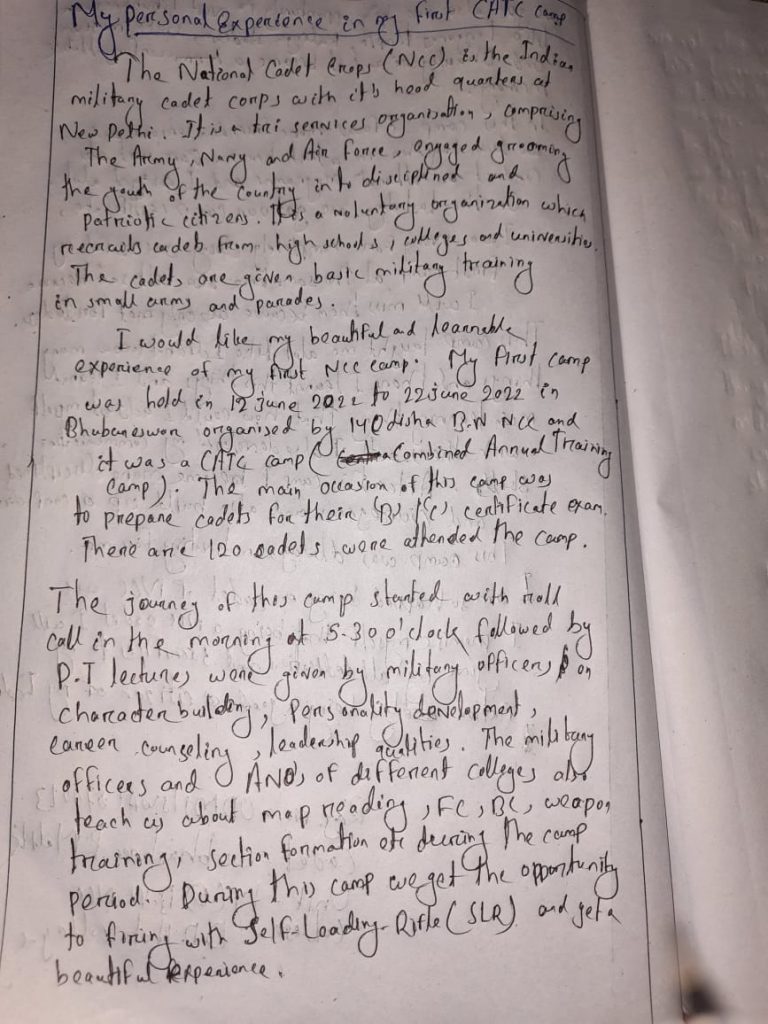 My personal Experience in my first CATC camp
The National Cadet Crops (NCC) is the Indian
military cadet corps with it's head quarters at
New Delhi. It is a tri services organisation, comprising
The Army, Navy and Air Force, engaged grooming
the youth of the country in to disciplined and
patriotic citizens. It is a voluntary organization which
recruits cadets from high schools, colleges and universities.
The cadets are given basic military training
in small arms and parades.
I would like my beautiful and learnable
experience of my first NCC camp. My First camp
was held in 12 june 2022 to 22 june 2022 in
Bhubaneswar organised by 1 Odisha B.N NCC and
it was a CATC camp ( a Combined Annual Training
Camp). The main occasion of this camp was
to prepare cadets for their 'B' 'C' certificate exam.
There are 120 cadets were attended the camp.
The journey of this camp started with roll
call in the morning at 5-30 o'clock followed by
P.T lectures were given by military officers on
character building, personality development,
career counseling, leadership qualities. The military
officers and ANO's of different colleges also
teach us about map reading, FC, BC, weapon
training, section formation etc during the camp
period. During this camp we get the opportunity
to firing with Self-Loading-Rifle (SLR) and get a
beautiful experience.